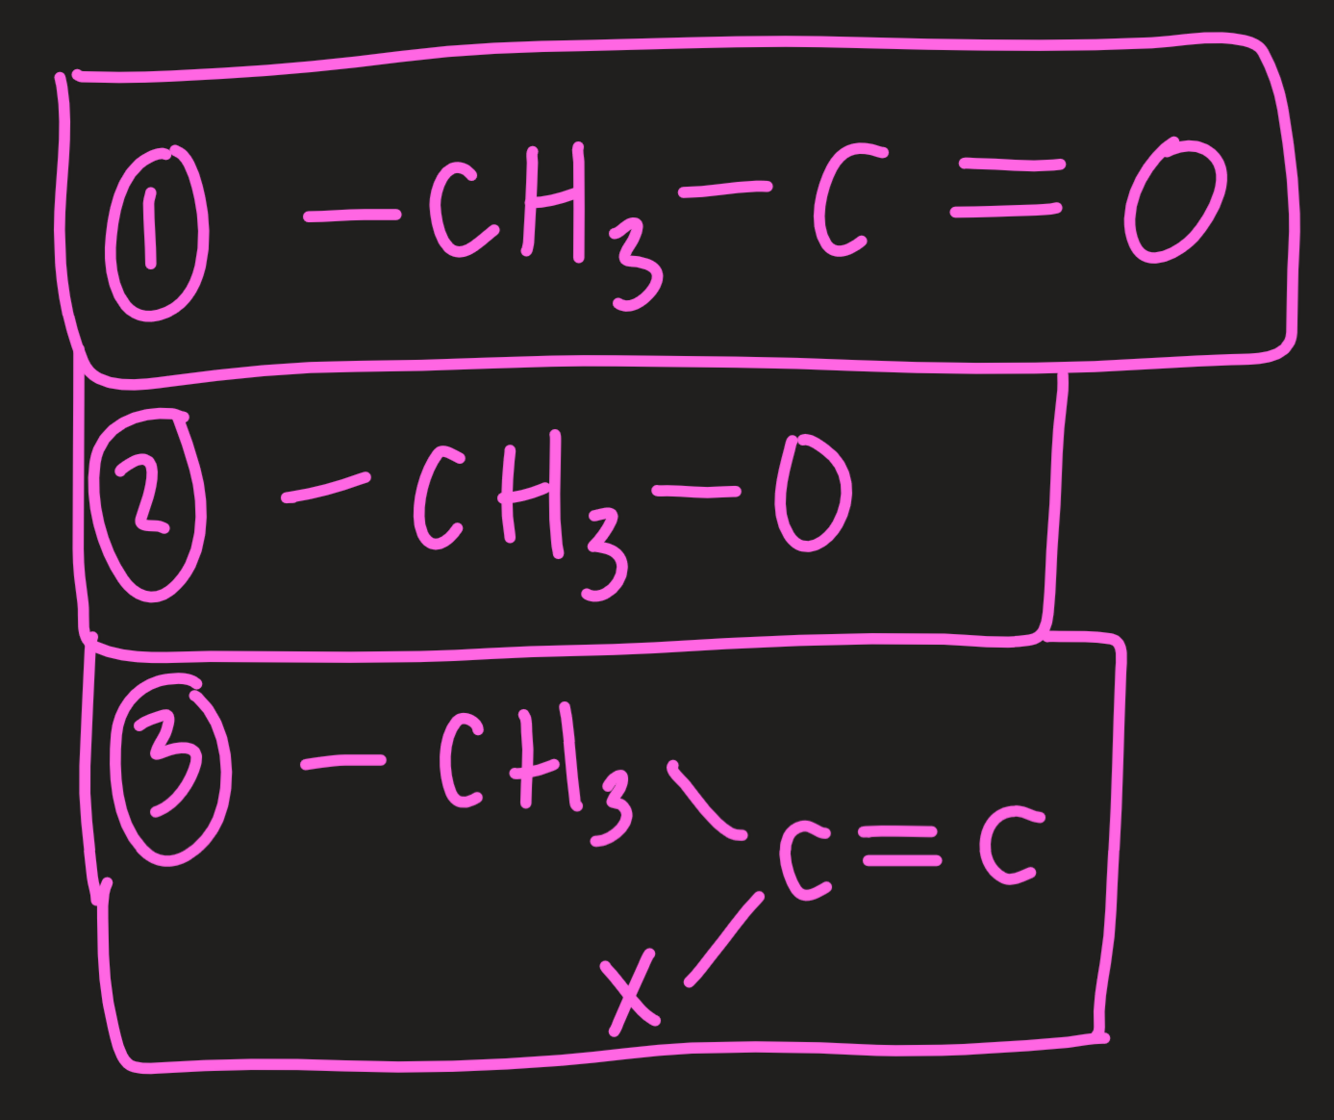 ① - CH₃ - C = O
② - CH₃ - O
③ - CH₃ \ C = C
X /